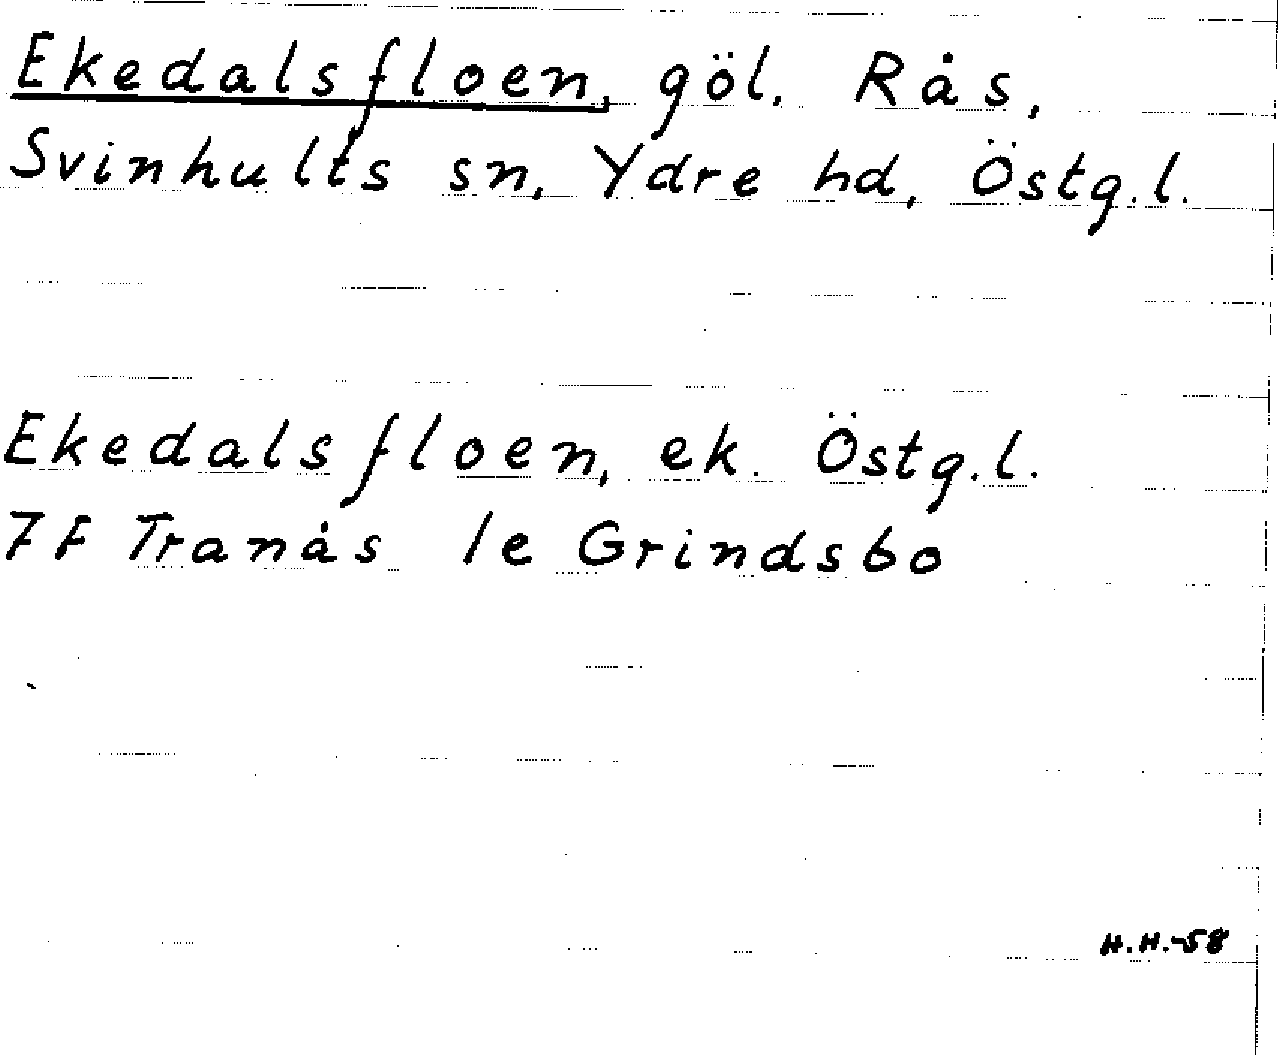 Ekedalsfloen, göl. Rås,
Svinhults sn, Ydre hd, Östg.l.
Ekedalsfloen, ek. Östg.l.
7F Tranås 1e Grindsbo
H.H.-58